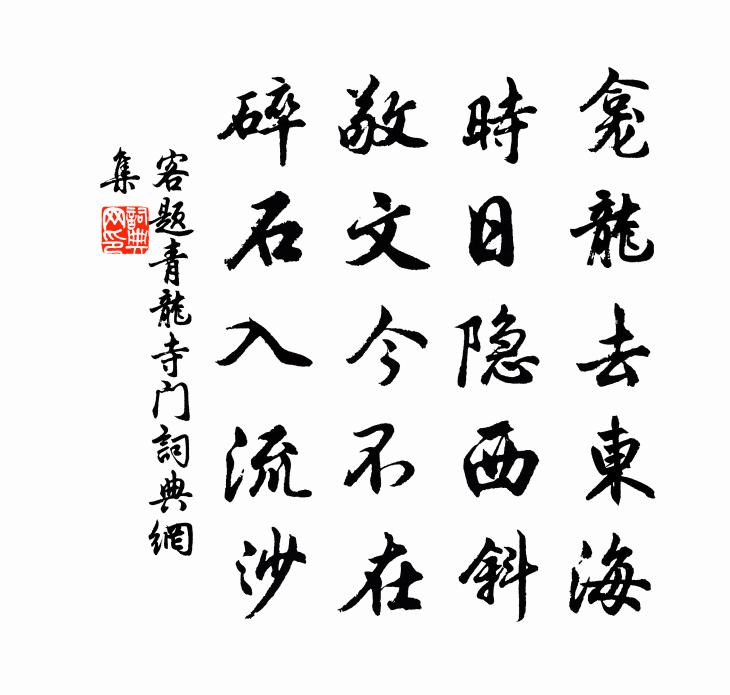 龛龍去東海
時日隐西斜
敬文今不在
碎石入流沙
客题青龍寺门詞典網
集
詞典網印